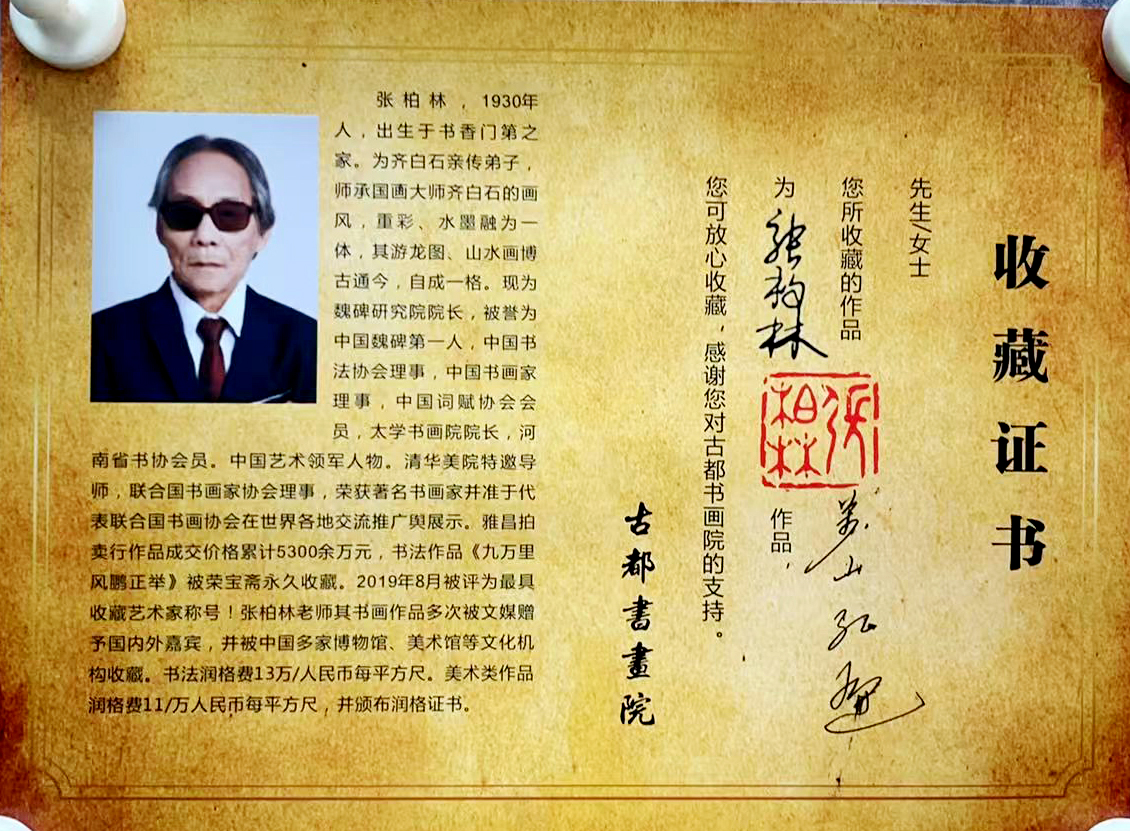 收藏证书
先生/女士
您所收藏的作品
萬山红遍
为张柏林
张柏林
作品，
您可放心收藏，感谢您对古都书画院的支持。
古都書畫院
张柏林，1930年
人，出生于书香门第之
家。为齐白石亲传弟子，
师承国画大师齐白石的画
风，重彩、水墨融为一
体，其游龙图、山水画博
古通今，自成一格。现为
魏碑研究院院长，被誉为
中国魏碑第一人，中国书
法协会理事，中国书画家
理事，中国词赋协会会
员，太学书画院院长，河
南省书协会员。中国艺术领军人物。清华美院特邀导
师，联合国书画家协会理事，荣获著名书画家并准于代
表联合国书画协会在世界各地交流推广舆展示。雅昌拍
卖行作品成交价格累计5300余万元，书法作品《九万里
风鹏正举》被荣宝斋永久收藏。2019年8月被评为最具
收藏艺术家称号！张柏林老师其书画作品多次被文媒赠
予国内外嘉宾，并被中国多家博物馆、美术馆等文化机
构收藏。书法润格费13万/人民币每平方尺。美术类作品
润格费11/万人民币每平方尺，并颁布润格证书。